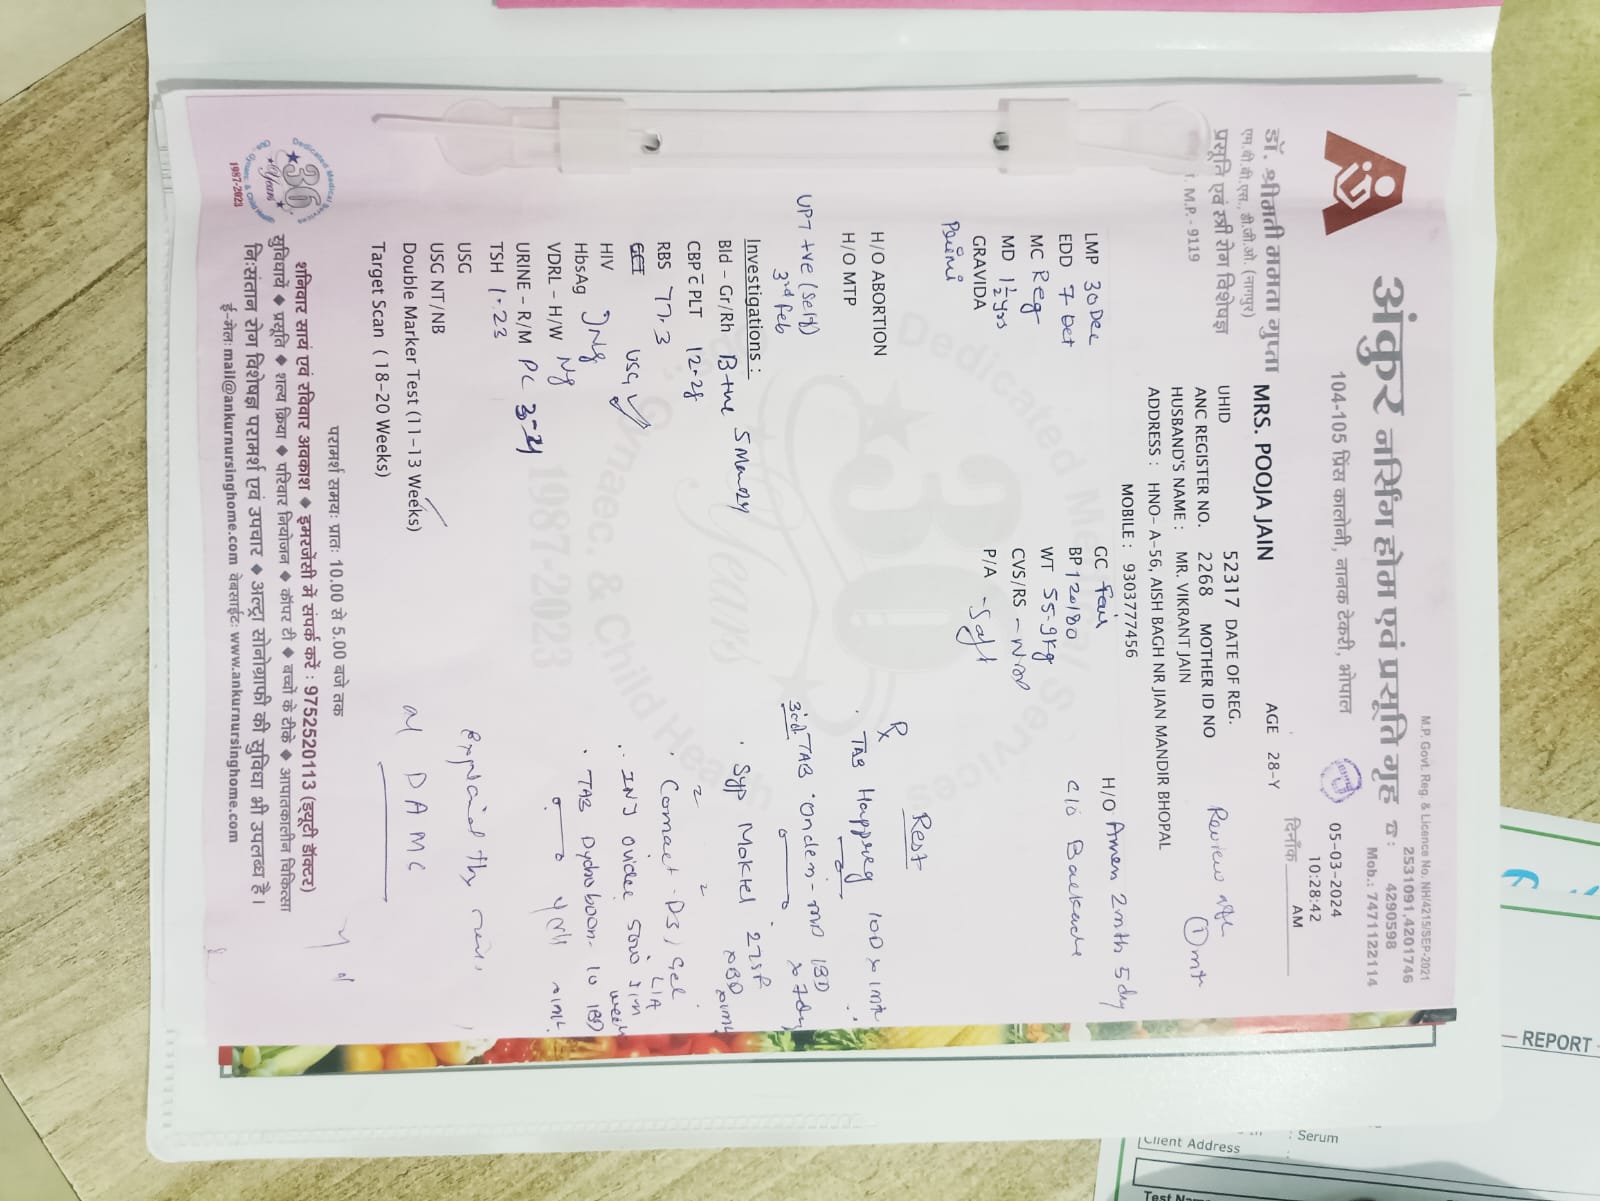 M.P. Govt. Reg. & Licence No. NH/4215/SEP-2021
अंकुर नर्सिंग होम एवं प्रसूति गृह
☎ : 2531091,4201746
4290598
Mob.: 7471122114
104-105 प्रिंस कालोनी, नानक टेकरी, भोपाल
05-03-2024
10:28:42
दिनाँक AM
डॉ. श्रीमती ममता गुप्ता
एम.बी.बी.एस., डी.जी.ओ. (नागपुर)
प्रसूति एवं स्त्री रोग विशेषज्ञ
M.P.- 9119
MRS. POOJA JAIN AGE 28-Y
UHID 52317 DATE OF REG.
ANC REGISTER NO. 2268 MOTHER ID NO
HUSBAND'S NAME : MR. VIKRANT JAIN
ADDRESS : HNO- A-56, AISH BAGH NR JIAN MANDIR BHOPAL
MOBILE : 9303777456
Review after
① mth
LMP 30 Dec
EDD 7 Oct
MC Reg
MD 1½ yrs
GRAVIDA
Primi
GC Fair
BP 120/80
WT 55.9kg
CVS/RS - NAD
P/A - Soft
H/O Amen 2mth 5 day
C/O Backache
H/O ABORTION
H/O MTP
UPT +ve (Self)
3rd Feb
Investigations :
Bld - Gr/Rh B+ve
CBP c̄ PLT 12.2g
RBS 77.3
HIV
HbsAg } Ng
VDRL - H/W Ng
URINE - R/M PC 3-4
TSH 1.23
USG
USG NT/NB
Double Marker Test (11-13 Weeks)
Target Scan ( 18-20 Weeks)
USG ✓
Rest
Rx
TAB Happreg 1OD x 1mth
TAB Ondem-MD 1BD
x 7day
Syp Moktel 2TSP
x BD
Comact-DS, Gel
L/A
INJ Ovidac 5000 IM
week
TAB Dydroboon-10 1BD
परामर्श समयः प्रातः 10.00 से 5.00 बजे तक
शनिवार सायं एवं रविवार अवकाश ◆ इमरजेंसी में संपर्क करें : 9752520113 (ड्यूटी डॉक्टर)
सुविधायें ◆ प्रसूति ◆ शल्य क्रिया ◆ परिवार नियोजन ◆ कॉपर टी ◆ बच्चों के टीके ◆ आपातकालीन चिकित्सा
निःसंतान रोग विशेषज्ञ परामर्श एवं उपचार ◆ अल्ट्रा सोनोग्राफी की सुविधा भी उपलब्ध है।
ई-मेलः mail@ankurnursinghome.com वेबसाईटः www.ankurnursinghome.com
Dedicated Medical Services
36 Years
Obs. Gynaec. & Child Health
1987-2023
Dedicated Medical Services
30 Years
Gynaec. & Child Health
1987-2023
REPORT
: Serum
Client Address :